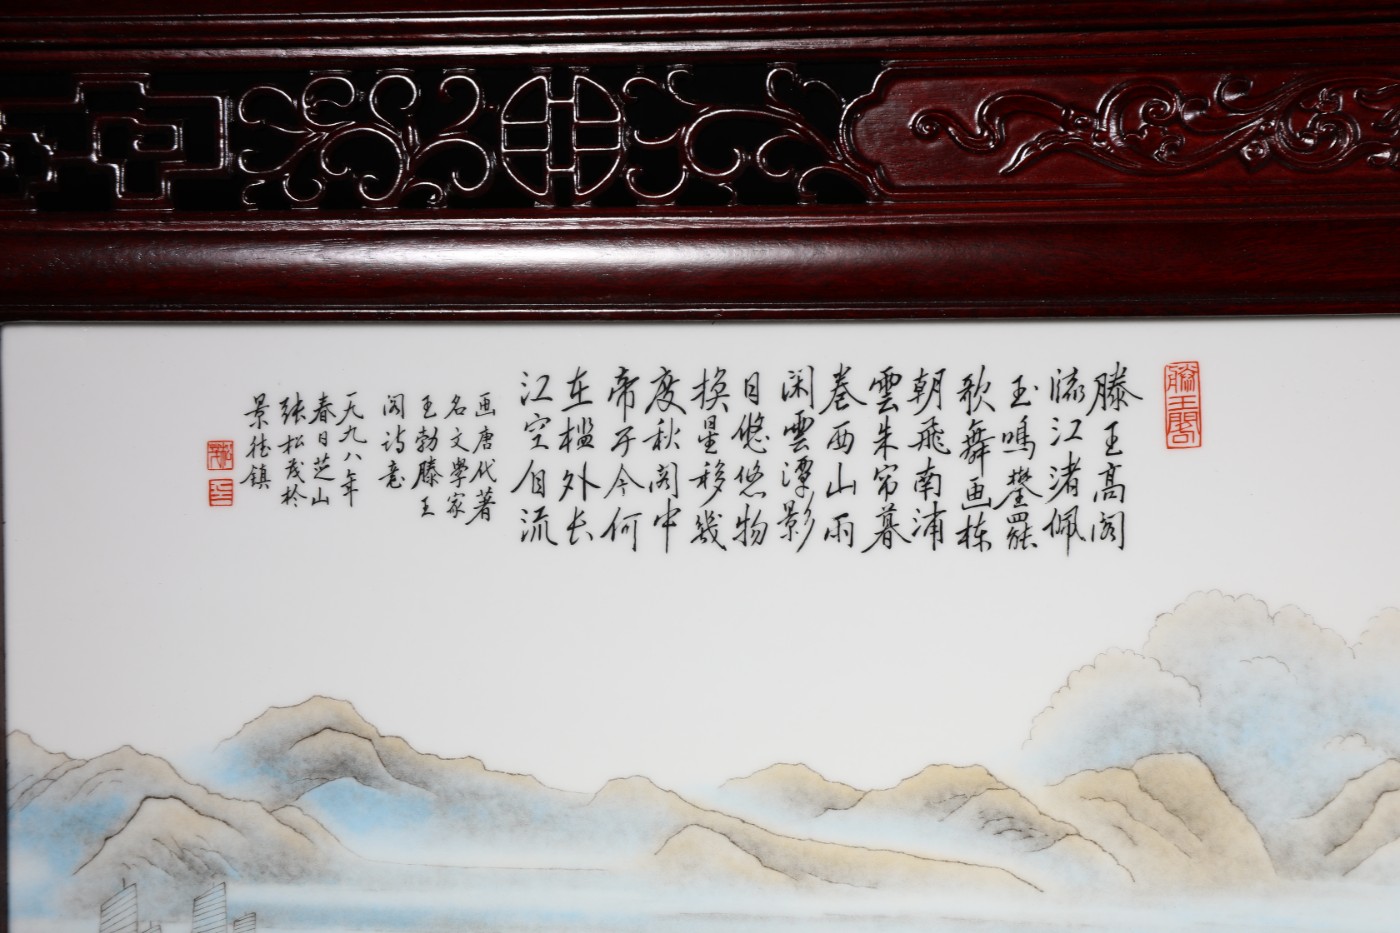 滕王阁
滕王高阁
臨江渚佩
玉鳴鑾罷
歌舞画栋
朝飛南浦
雲朱帘暮
卷西山雨
闲雲潭影
日悠悠物
换星移幾
度秋阁中
帝子今何
在槛外长
江空自流
画唐代著
名文學家
王勃滕王
阁诗意
一九九八年
春日芝山
张松茂於
景德镇